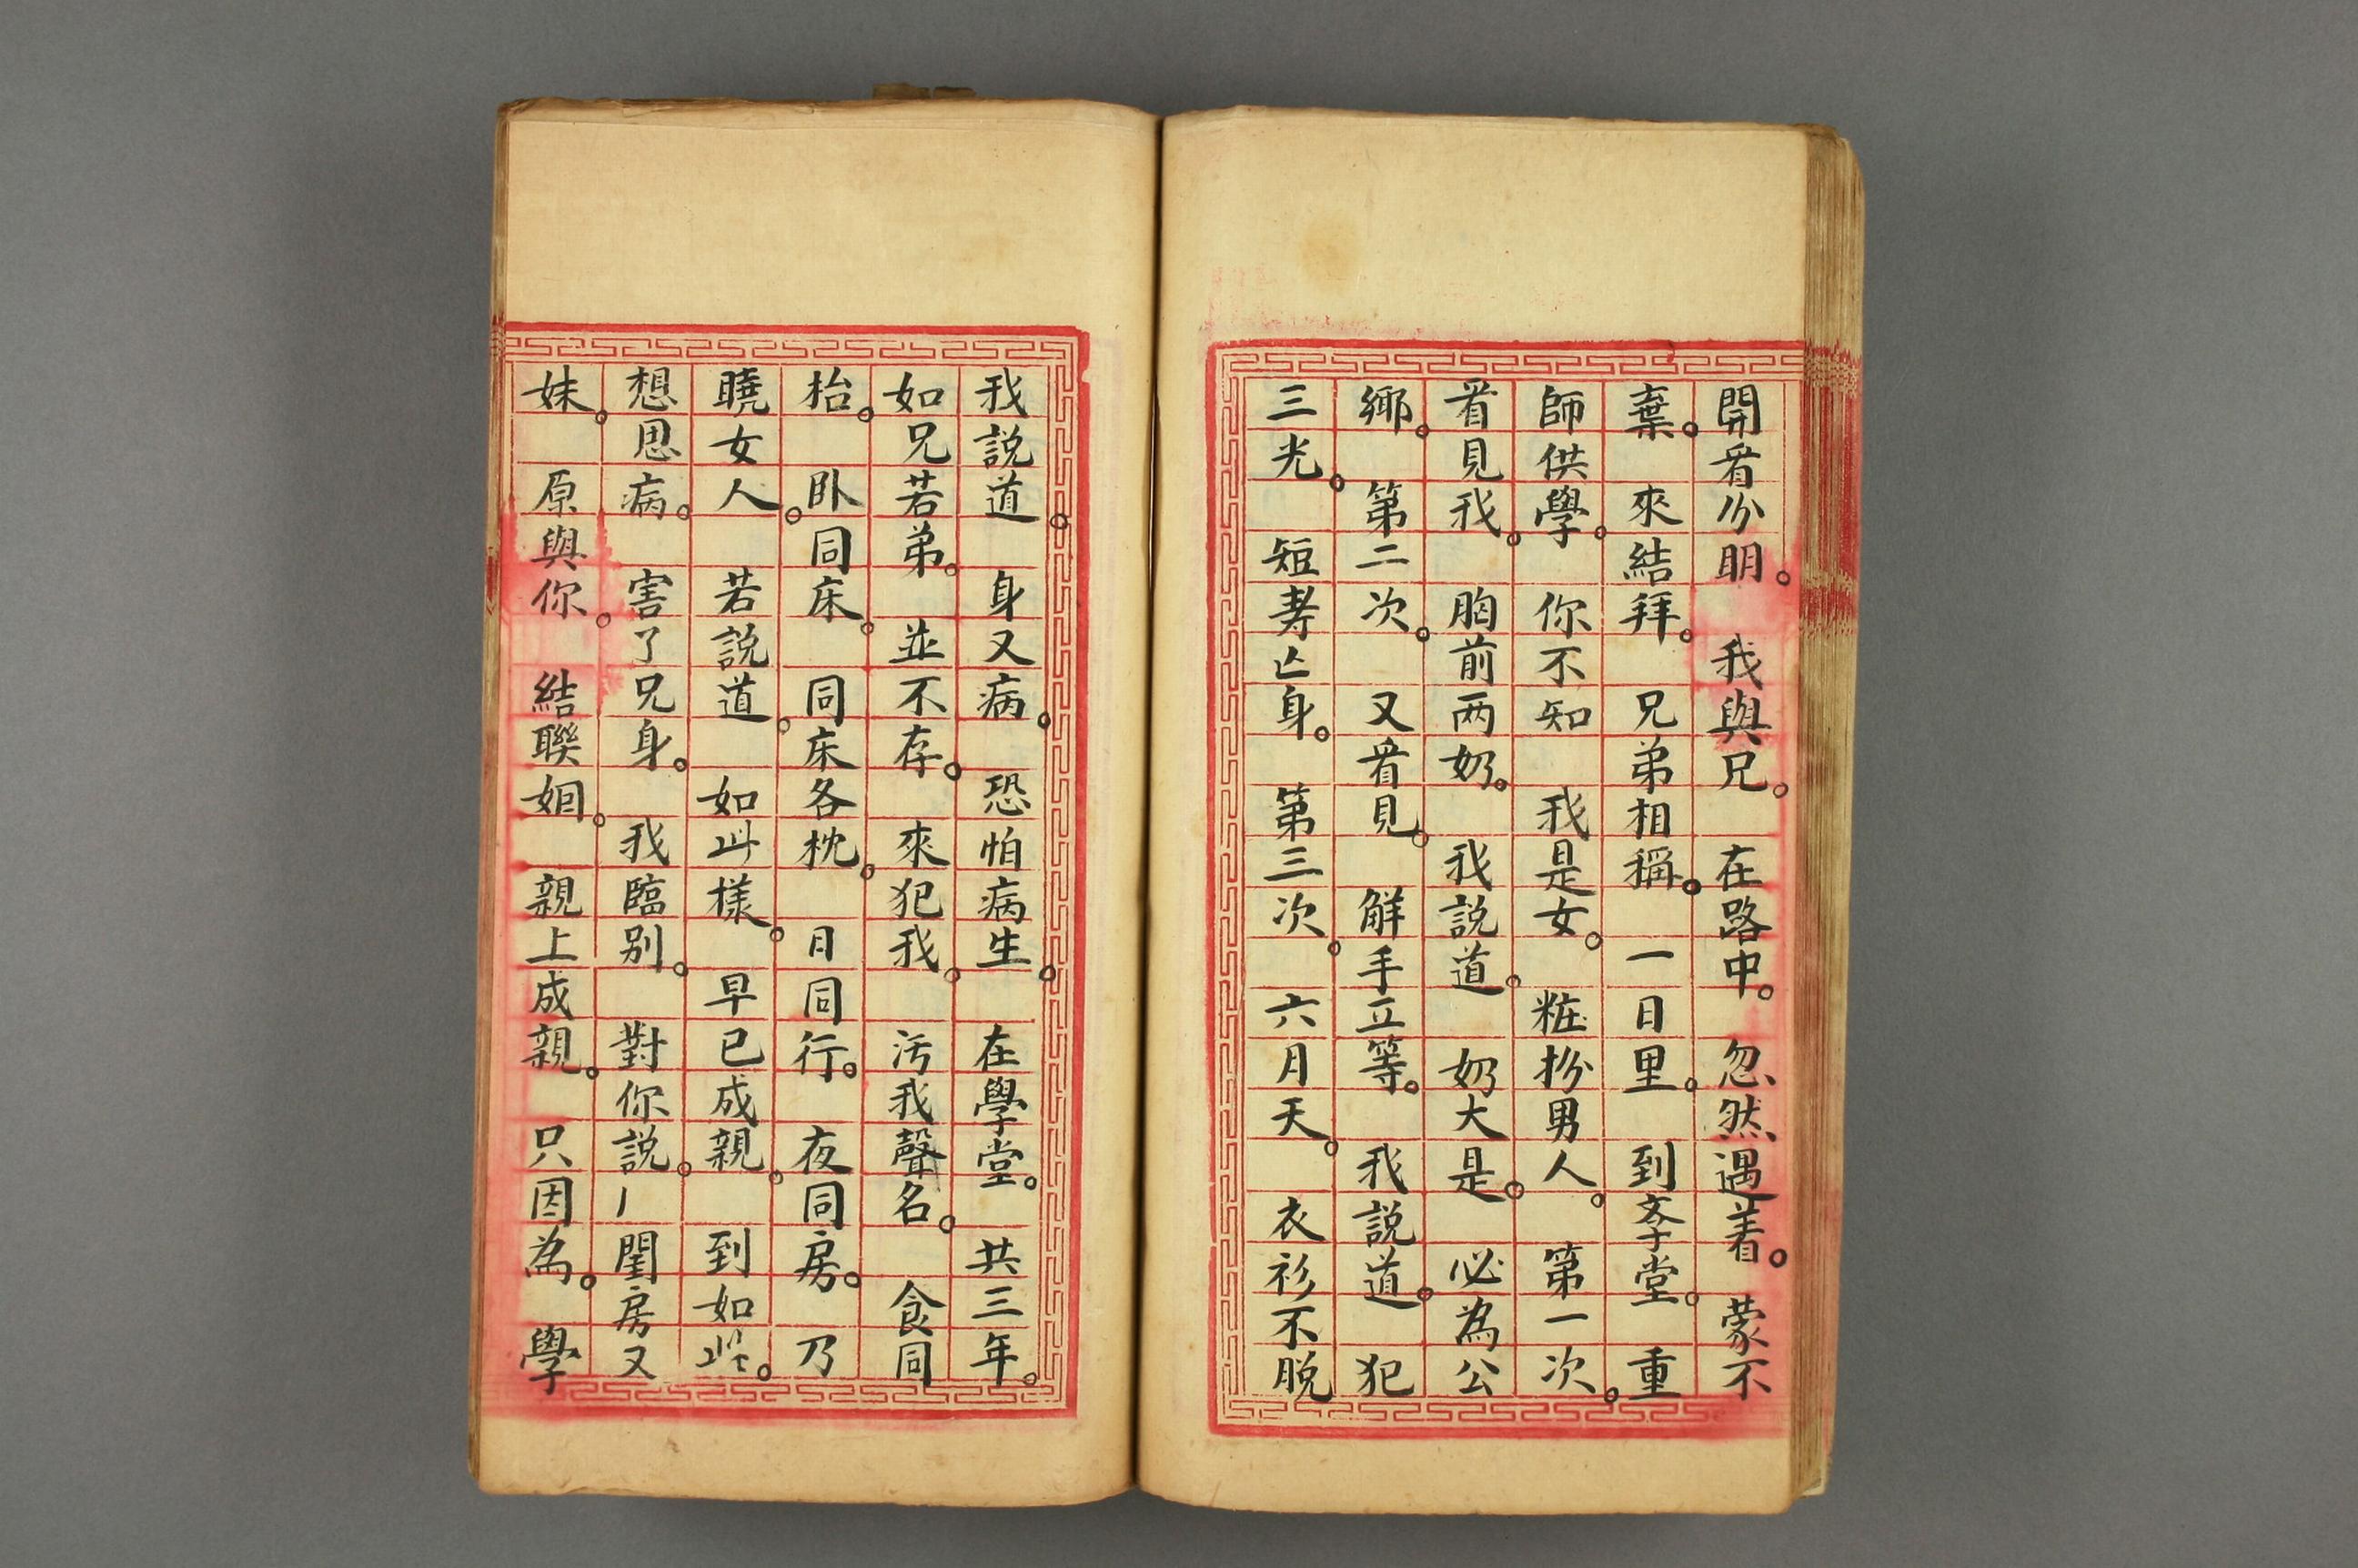 開看分明。我與兄。在路中。忽然遇着。蒙不
棄。來結拜。兄弟相稱。一日里。到斈堂。重
師供學。你不知我是女。粧扮男人。第一次。
看見我。胸前両奶。我說道。奶大是。必為公
鄉。第二次。又看見。觧手立等。我說道。犯
三光。短壽亡身。第三次。六月天。衣衫不脫
我說道。身又病。恐怕病生。在學堂。共三年。
如兄若弟。並不存。來犯我。污我聲名。食同
枱。卧同床。同床各枕。日同行。夜同房。乃
曉女人。若說道。如此樣。早已成親。到如些。
想思病。害了兄身。我臨别。對你說。閨房又
妹。原與你。結聯姻。親上成親。只因為。學